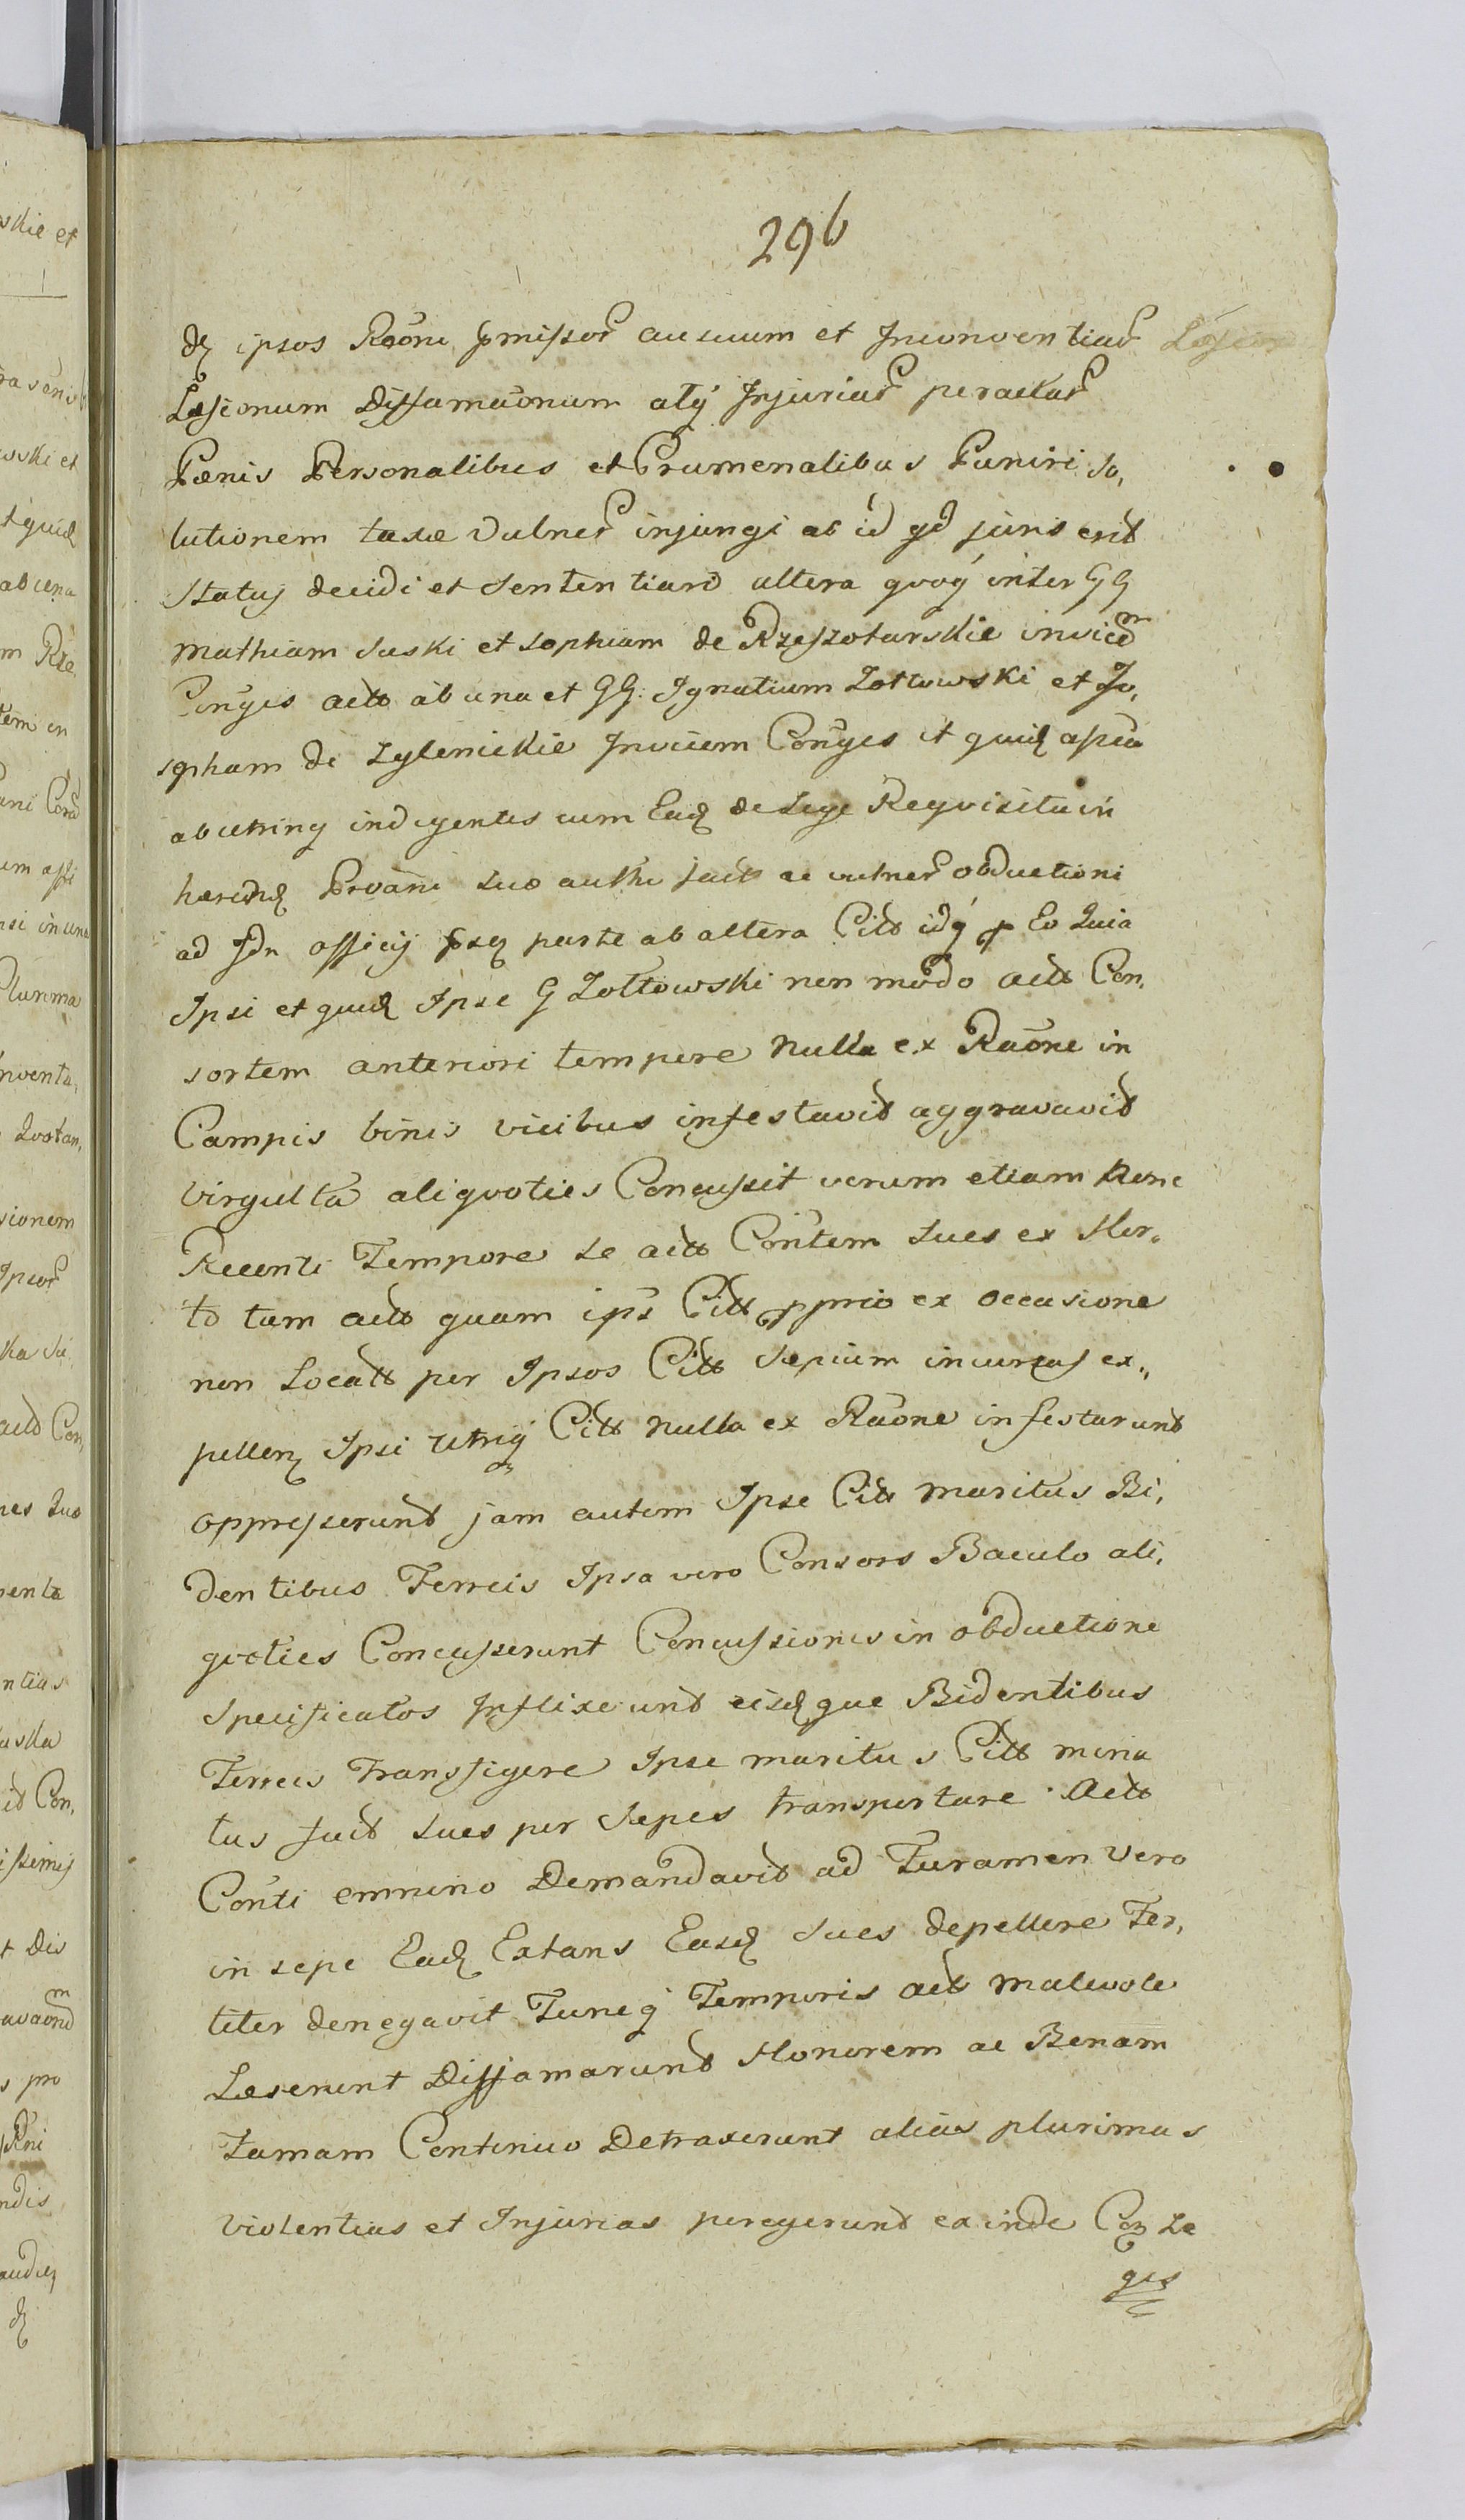 296
ipsos Raõne pmissor ausuum et Inconventiar
Læsionum Diffamaõnum aliq Injuriar peractar
Pœnis Personalibus et Crumenalibus Puniri So,
lutionem taxæ Vulner injungi ab id qd juris erit
Statuj decidi et Sententiari altera quoq inter GG
Mathiam Suski et Sophiam de Rzeszotarskie invicem
Conjges actt ab una et GG. Ignatium Zołtowski et Jo,
sepham de Zglenickie Invicem Conjges et quid assia
ab utrinq indigentes cum Ead de Lege Requisita in
suo authi ac vulner obductioni
ad officij parte ab altera Citt idq p Eo Quia
Ipsi et quid Ipse G Zołtowski non modo actt Con,
sortem anteriori tempore Nulla ex Raõne in
Campis binis vicibus infestavit aggravavit
Virgulta aliqvoties Concussit verum etiam
Recenti Tempore Se actt Contem Sues ex Hor,
to tam actt quam ips Citt pprio ex occasione
non Locatt per Ipsos Citt Sepium incursus ex,
pellen Ipsi Utriq Citt Nulla ex Raõne infestarunt
oppresserunt jam autem Ipse Citt maritus Bi,
dentibus Ferreis Ipsa vero Consors Baculo ali,
qvoties Concusserunt Concussiones in obductione
Specificatos Inflixerunt eisd que Bidentibus
Ferreis Transfigere Ipse maritus Citt mina
tus fuit Sues per Sepes transportare Actt
Conti omnino Demandavit ad Juramen vero
in sepe Ead Extans Easd Sues depellere For,
titer denegavit Tuncq Temporis actt malevole
Læserunt Diffamarunt Honorem ac Bonam
Famam Continuo Detraxerunt alias plurimas
Violentias et Injurias peregerunt exinde Con Le
ges